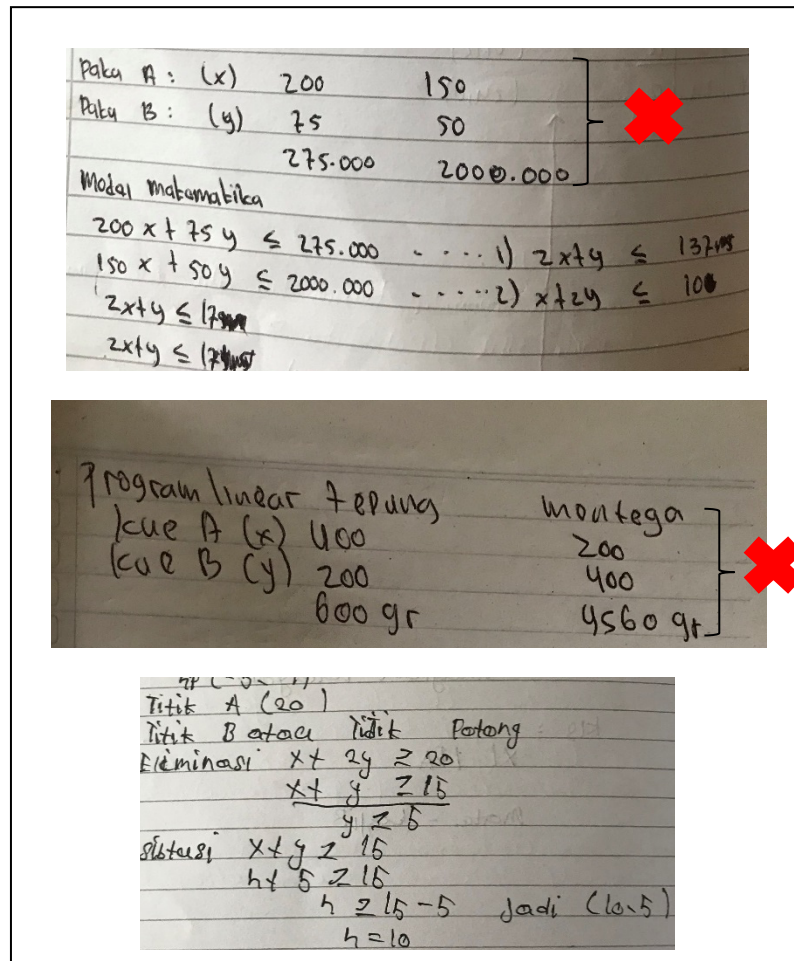 Paku A : (x) 200 150
Paku B : (y) 75 50
275.000 2000.000
Modal matematika
200 x + 75 y ≤ 275.000 ..... 1) 2x+y ≤
150 x + 50 y ≤ 2000.000 ..... 2) x+2y ≤
2x+y ≤
2x+y ≤
Program linear tepung montega
kue A (x) 400 200
kue B (y) 200 400
600 gr 4560 gr
Titik A (20)
Titik B atau Titik Potong
Eleminasi x+ 2y ≥ 20
x+ y ≥ 15
y ≥ 5
x+ y ≥ 15
h+ 5 ≥ 15
h ≥ 15-5 Jadi (10.5)
h = 10